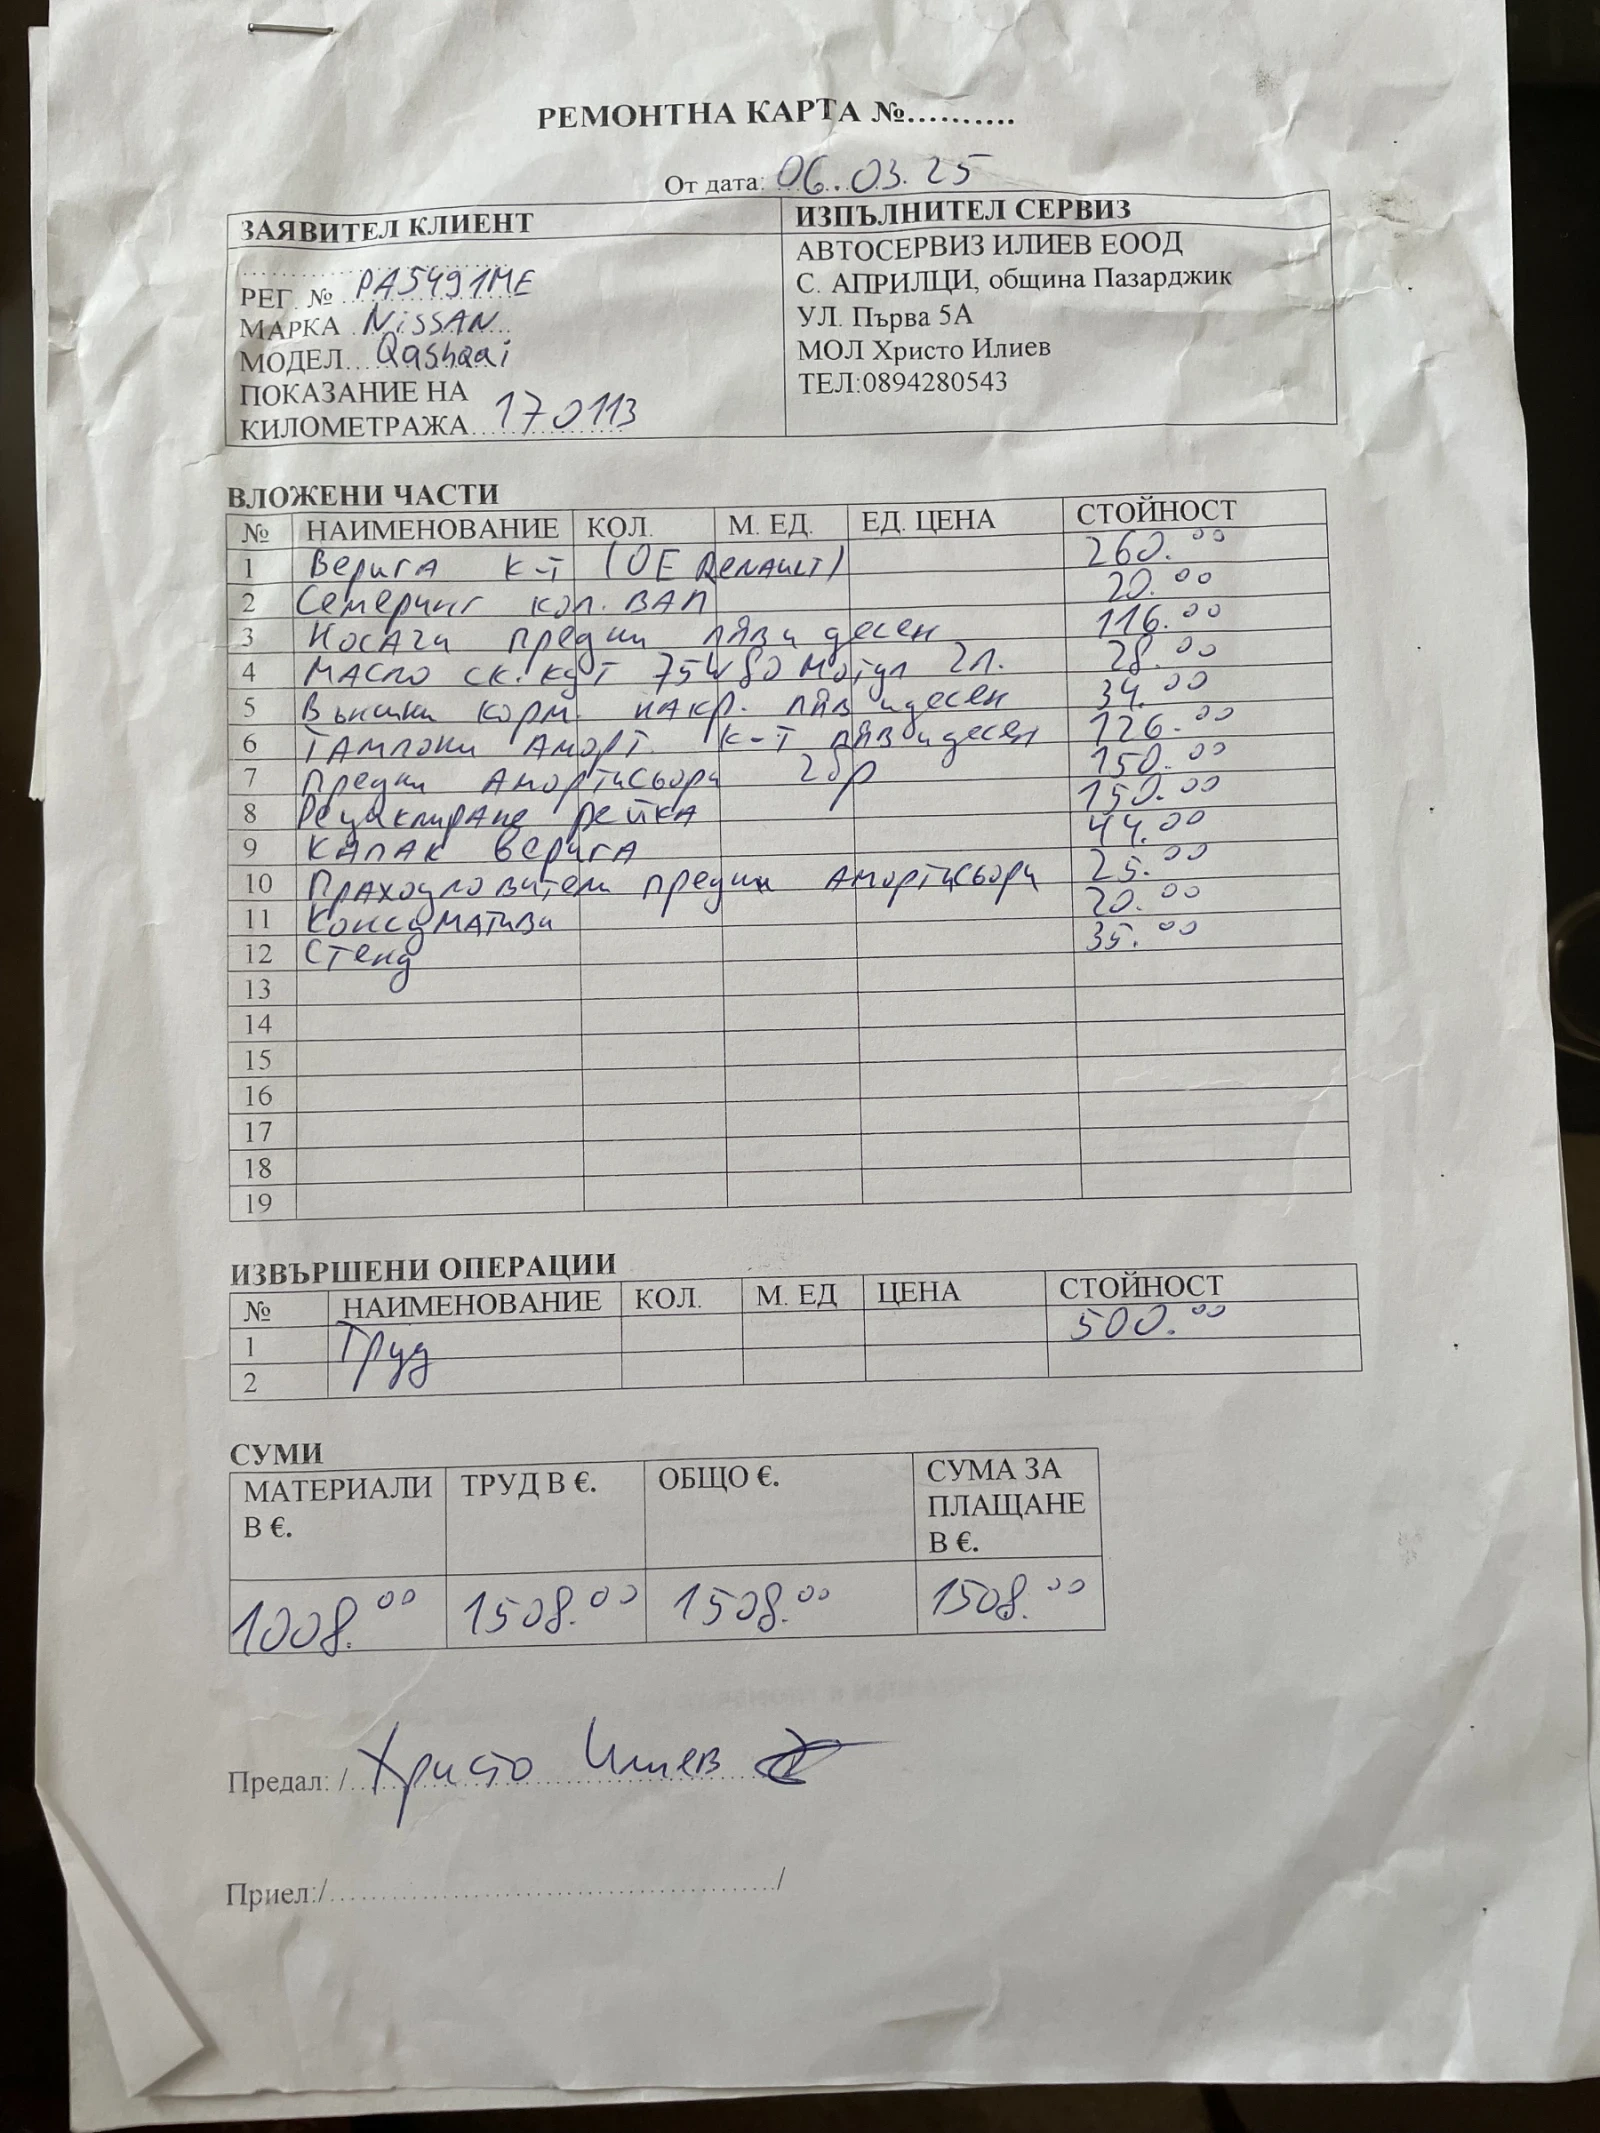 РЕМОНТНА КАРТА №..........
От дата: 06.03.25
ЗАЯВИТЕЛ КЛИЕНТ
РЕГ. № PA5491ME
МАРКА NiSSAN
МОДЕЛ Qashqai
ПОКАЗАНИЕ НА
КИЛОМЕТРАЖА 170113
ИЗПЪЛНИТЕЛ СЕРВИЗ
АВТОСЕРВИЗ ИЛИЕВ ЕООД
С. АПРИЛЦИ, община Пазарджик
УЛ. Първа 5А
МОЛ Христо Илиев
ТЕЛ:0894280543
ВЛОЖЕНИ ЧАСТИ
№ НАИМЕНОВАНИЕ КОЛ. М. ЕД. ЕД. ЦЕНА СТОЙНОСТ
1 Верига к-т (OE Renault) 260.00
2 Семеринг кол. вал 20.00
3 Носачи предни ляв и десен 116.00
4 Масло ск. кут 75W80 Мотул 2л. 28.00
5 Външни корм. накр. ляв и десен 34.00
6 Тампони аморт. к-т ляв и десен 126.00
7 Предни амортисьори 2бр 150.00
8 Рециклиране рейка 150.00
9 Капак верига 44.00
10 Прахоуловители предни амортисьори 25.00
11 Консумативи 20.00
12 Стенд 35.00
13
14
15
16
17
18
19
ИЗВЪРШЕНИ ОПЕРАЦИИ
№ НАИМЕНОВАНИЕ КОЛ. М. ЕД ЦЕНА СТОЙНОСТ
1 Труд 500.00
2
СУМИ
МАТЕРИАЛИ В €. ТРУД В €. ОБЩО €. СУМА ЗА ПЛАЩАНЕ В €.
1008.00 1508.00 1508.00 1508.00
Предал: / Христо Илиев
Приел:/............................................/